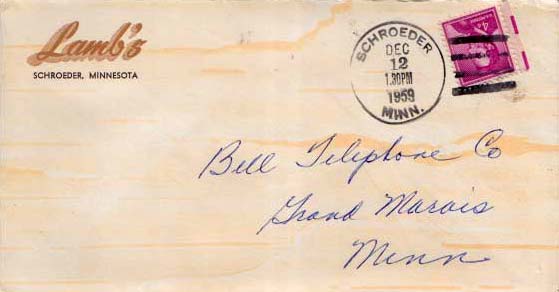 Lamb's
SCHROEDER, MINNESOTA
SCHROEDER
DEC
12
1.30PM
1959
MINN.
4¢
Bell Telephone Co
Grand Marais
Minn